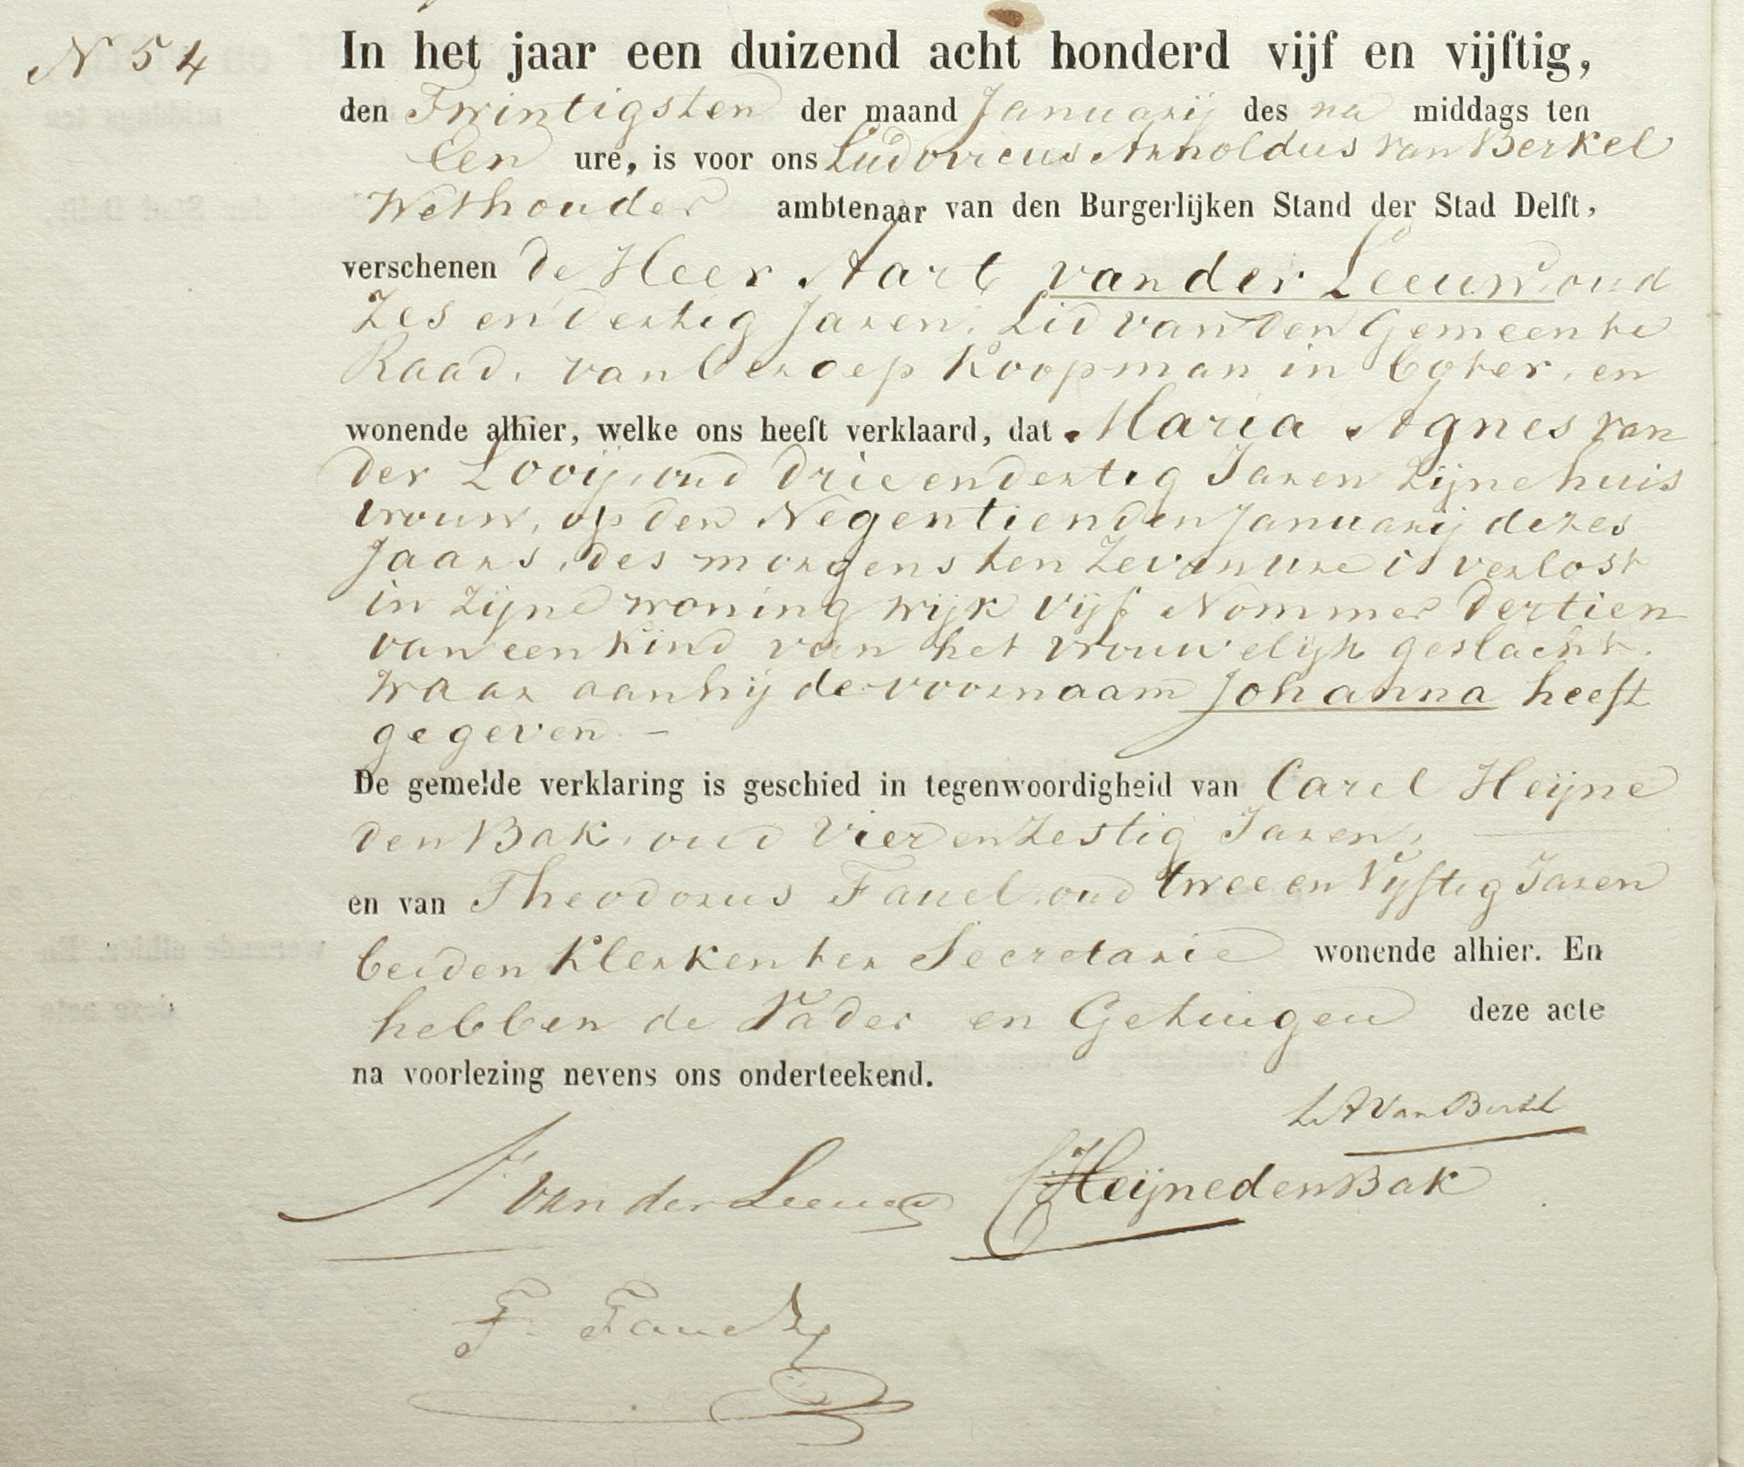 N 54
In het jaar een duizend acht honderd vijf en vijftig,
den Twintigsten der maand Januarij des na middags ten
Een ure, is voor ons Ludovicus Arnoldus van Berkel
Wethouder ambtenaar van den Burgerlijken Stand der Stad Delft,
verschenen de Heer Aart van der Leeuw oud
Zes en dertig Jaren, Lid van den Gemeente
Raad, van beroep Koopman in boter, en
wonende alhier, welke ons heeft verklaard, dat Maria Agnes van
der Looij, oud drie en dertig Jaren zijne huis
vrouw, op den Negentienden Januarij dezes
Jaars, des morgens ten Zeven ure is verlost
in zijne woning wijk vijf Nommer dertien
van een kind van het vrouwelijk geslacht.
waar aan hij de voornaam Johanna heeft
gegeven –
De gemelde verklaring is geschied in tegenwoordigheid van Carel Heijne
den Bak, oud Vier en Zestig Jaren,
en van Theodorus Fauel, oud twee en Vijftig Jaren
beiden Klerken ter Secretarie wonende alhier. En
hebben de Vader en Getuigen deze acte
na voorlezing nevens ons onderteekend.
L A van Berkel
A van der Leeuw
C Heijne den Bak